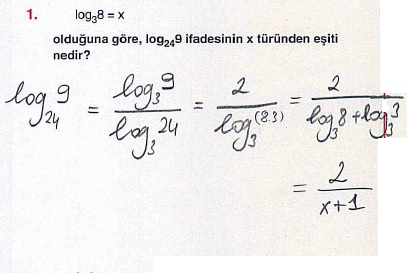 1. log₃8 = x
olduğuna göre, log₂₄9 ifadesinin x türünden eşiti
nedir?
log₂₄9 = log₃9 / log₃24 = 2 / log₃(8.3) = 2 / log₃8 + log₃3
= 2 / x+1